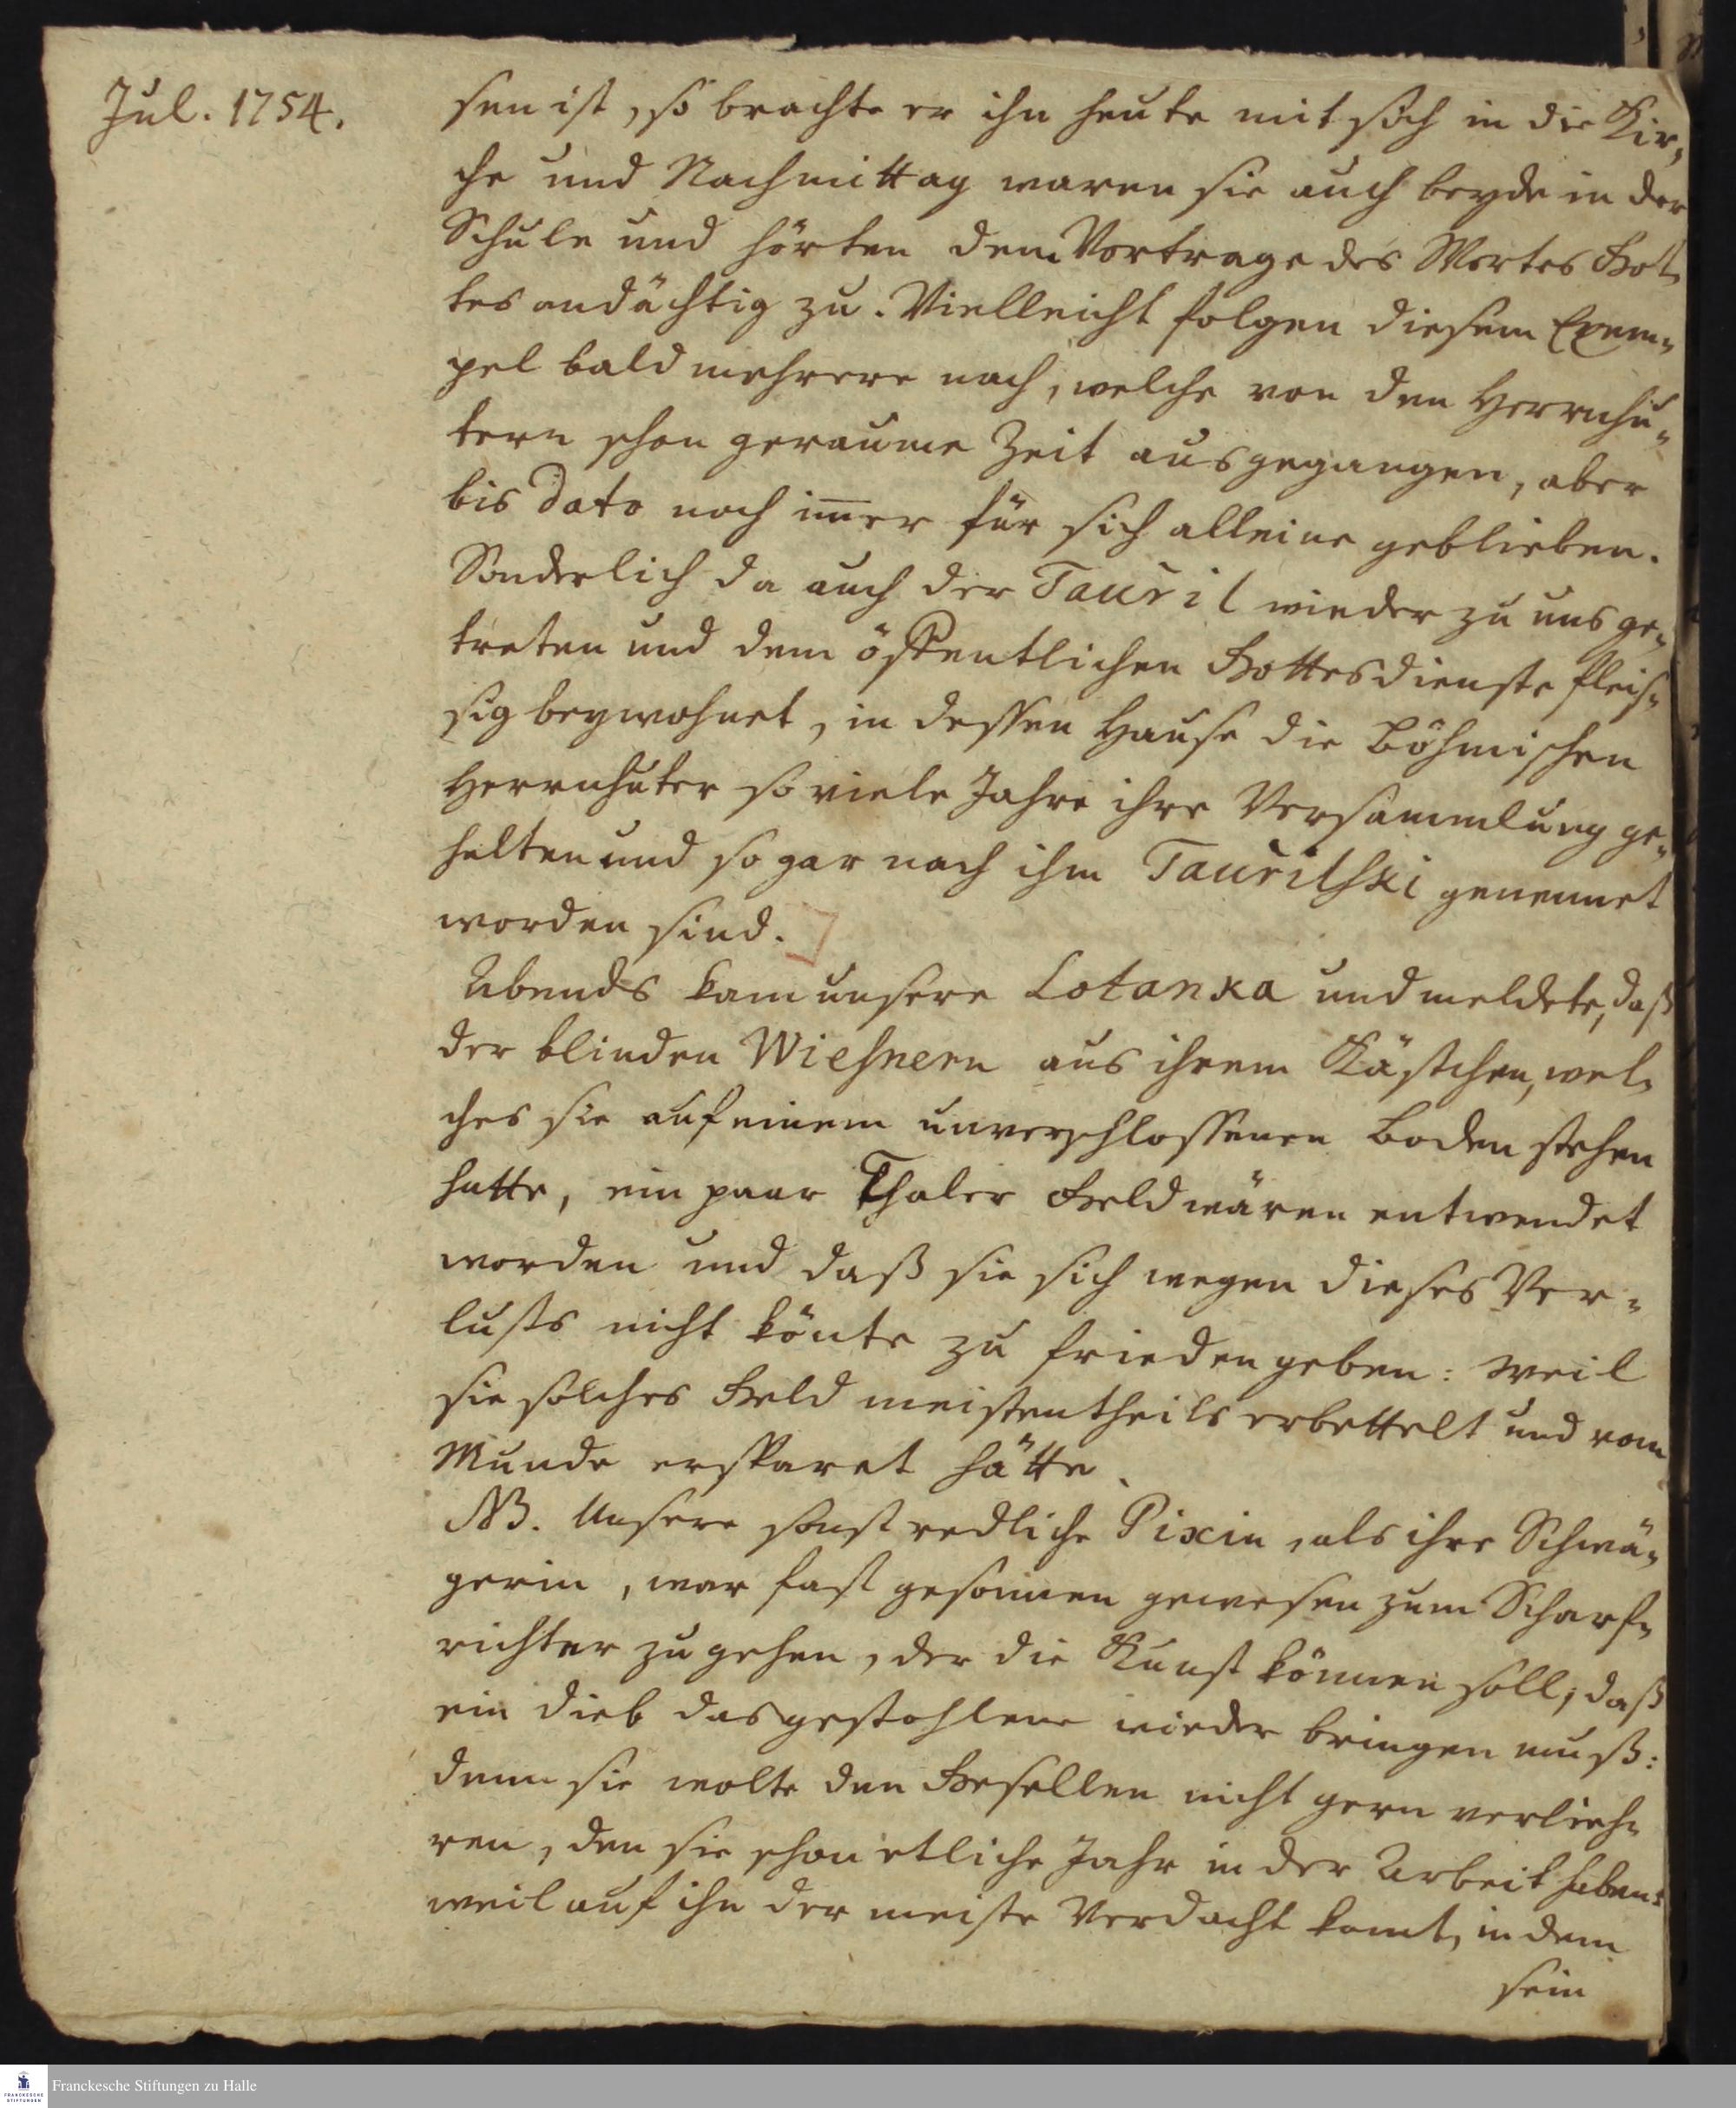 Jul. 1754.
sen ist, so brachte er ihn heute mit sich in die Kir-
che und Nachmittag waren sie auch beyde in der
Schule und hörten dem Vortrage des Wortes Got-
tes andächtig zu. Vielleicht folgen diesem Exem-
pel bald mehrere nach, welche von den Herrnhu-
tern schon geraume Zeit ausgegangen, aber
bis dato noch im̅er für sich alleine geblieben.
Sonderlich da auch der Tauril wieder zu uns ge-
treten und dem öffentlichen Gottesdienste fleis-
sig beywohnet, in dessen Hause die Böhmischen
Herrnhuter so viele Jahre ihre Versammlung ge-
halten und so gar nach ihm Taurilski genennet
worden sind.
Abends kam unsere Lotanka und meldete, daß
der blinden Wiesnern aus ihrem Kästchen, wel-
ches sie auf einem unverschlossenen Boden stehen
hatte, ein paar Thaler Geld wären entwendet
worden und daß sie sich wegen dieses Ver-
lusts nicht könte zu frieden geben: weil
sie solches Geld meistentheils erbettelt und vom
Munde ersparet hätte.
NB. Unsere sonst redliche Pixin, als ihre Schwä-
gerin, war fast gesonnen gewesen zum Scharf-
richter zu gehen, der die Kunst können soll, daß
ein Dieb das gestohlene wieder bringen muß:
denn sie wolte den Gesellen nicht gern verlieh-
ren, den sie schon etliche Jahr in der Arbeit haben:
weil auf ihn der meiste Verdacht komt, in dem
sein
Franckesche Stiftungen zu Halle
FRANCKESCHE
STIFTUNGEN